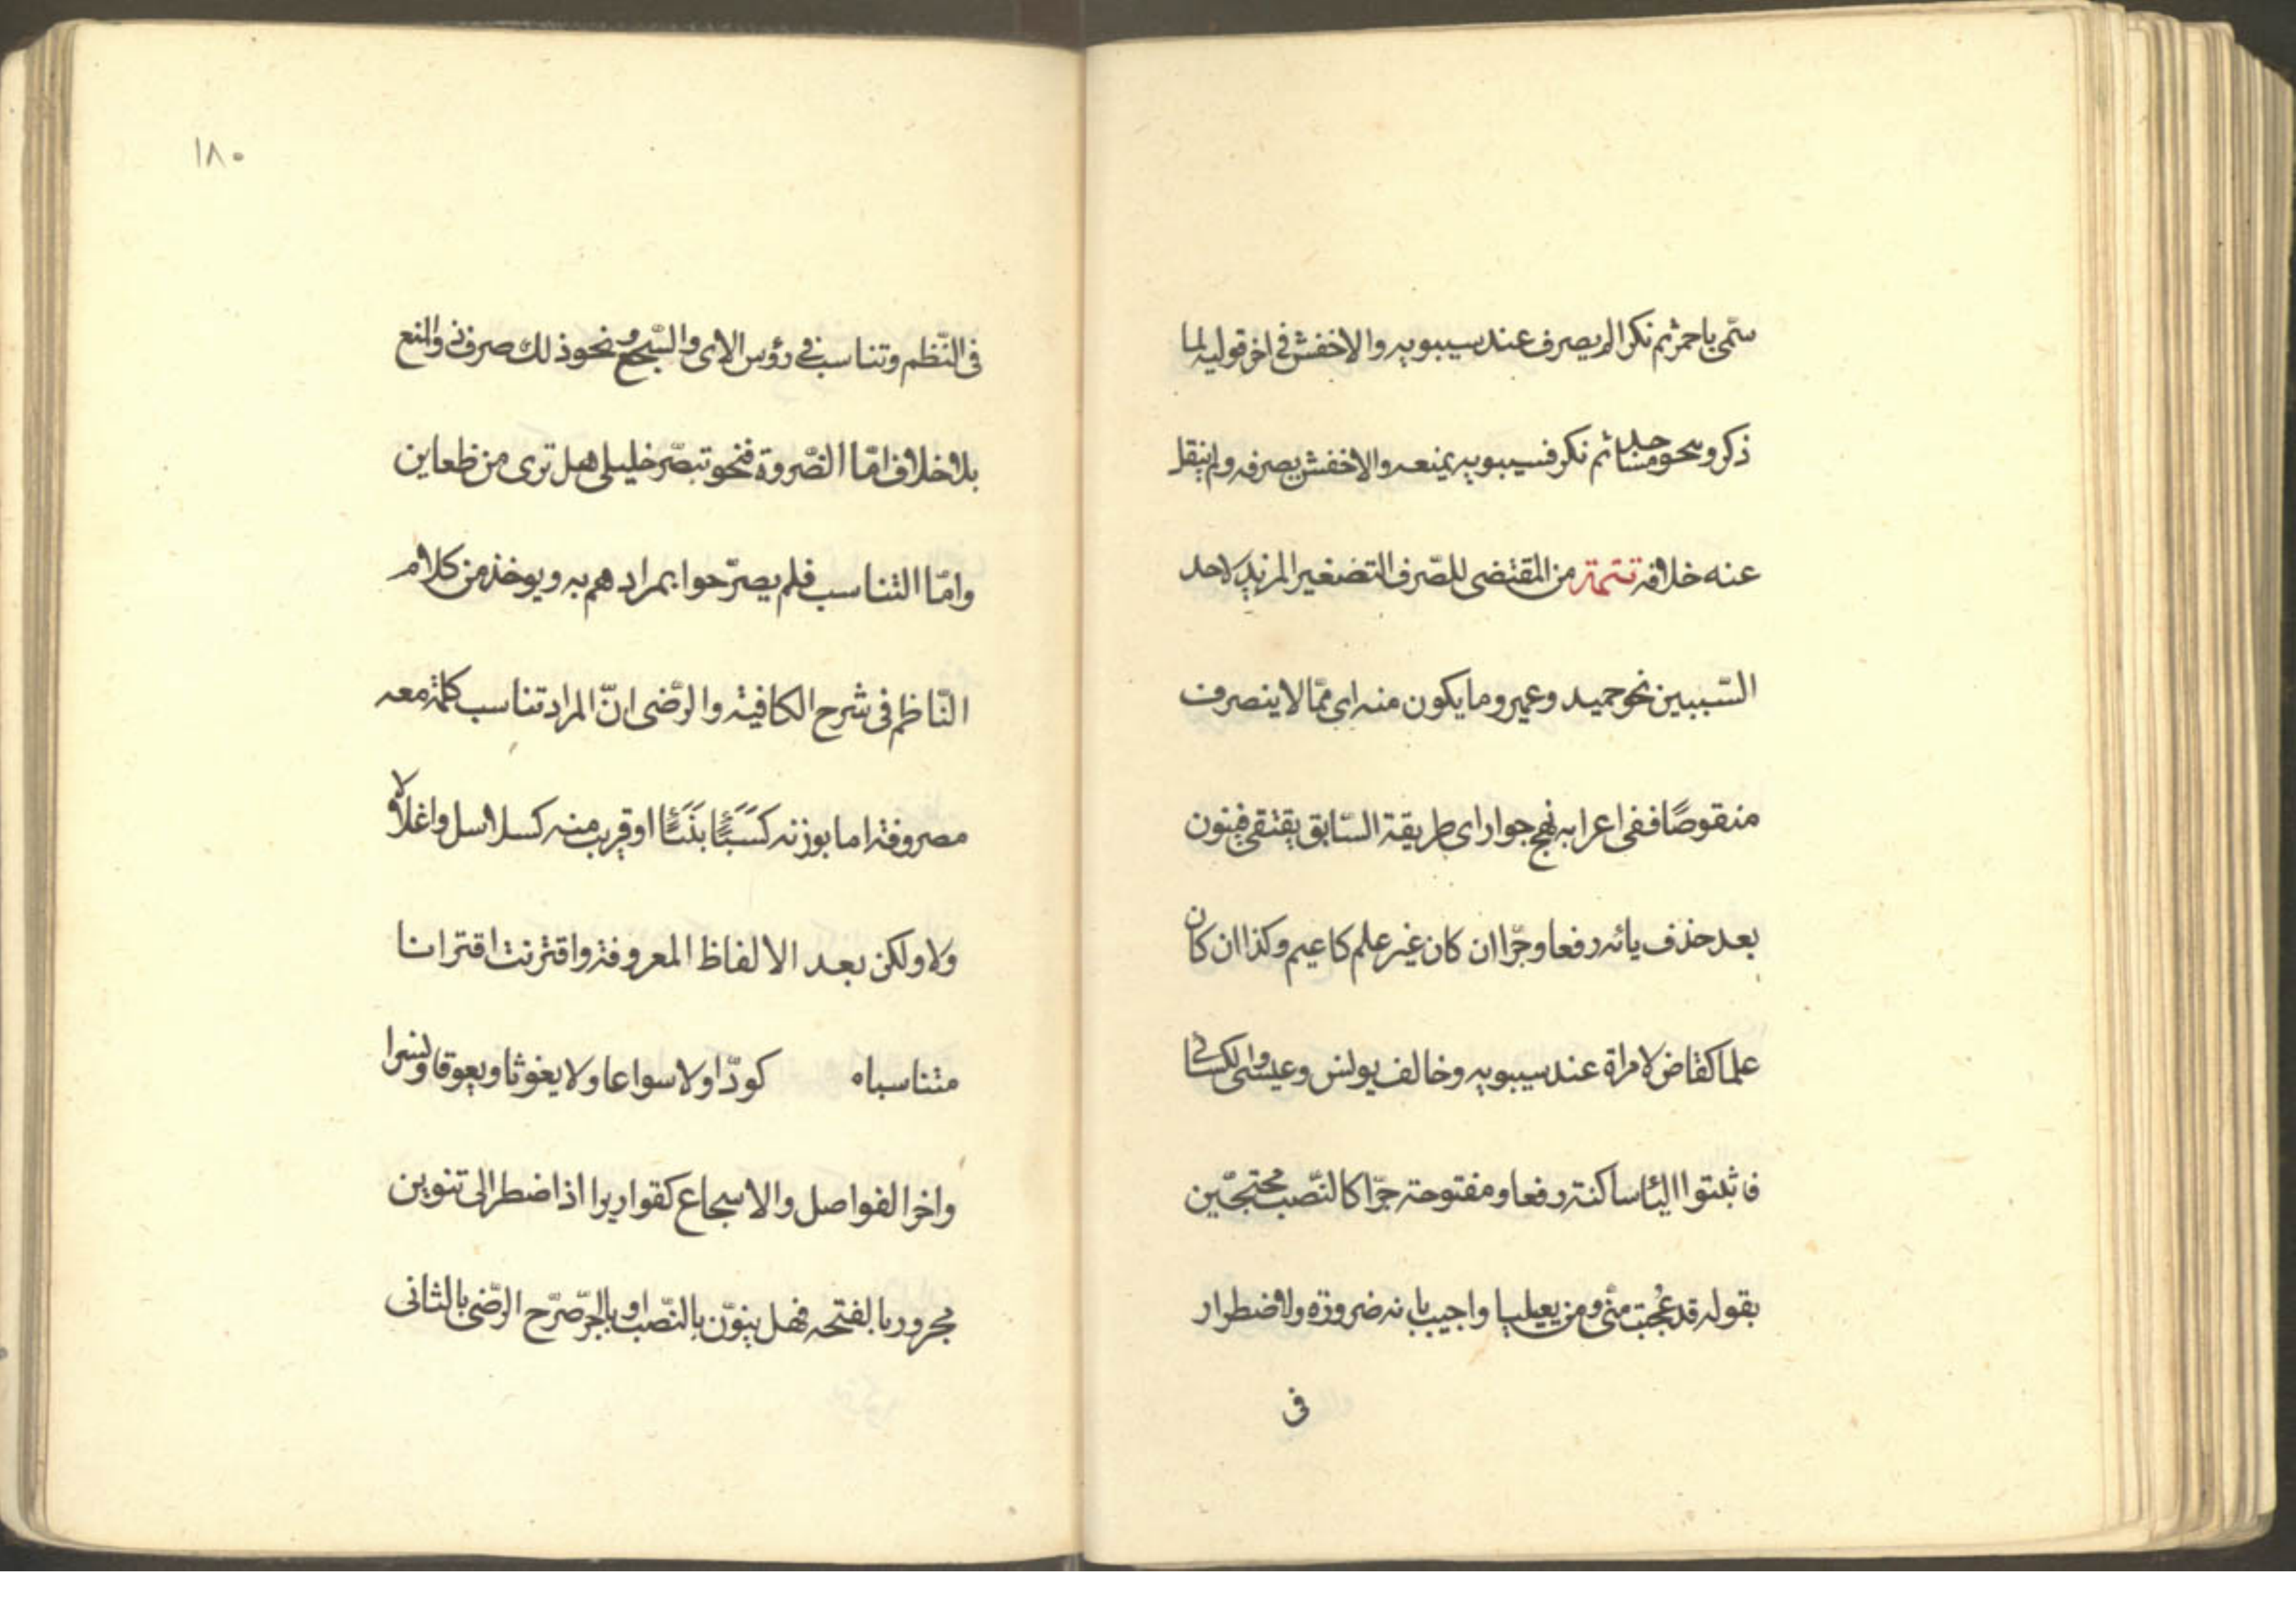 سمّى باحمر ثم نكر الم يصرف عند سيبويه والاخفش فى اخر قوليه لما
ذكر ونحو مساجد ثم نكر فسيبويه يمنعه والاخفش يصرفه ولم ينقل
عنه خلافه تتمة من المقتضى للصّرف التصغير المزيل لاحد
السّببين نحو حميد وعمير وما يكون منه اى ممّا لا ينصرف
منقوصًا ففى اعرابه نهج جوار اى طريقة السّابق يقتفى فينون
بعد حذف يائه رفعا وجرّا ان كان غير علم كاعيم وكذا ان كان
علما كقاض لامراة عند سيبويه وخالف يونس وعيسى والكسائى
فاثبتوا الئا ساكنة رفعا ومفتوحة جرّا كالنّصب محتجّين
بقوله قد عُجبت منّى ومن يعيليا واجيب بانه ضرورة ولاضطرار
فى
١٨٠
فى النّظم وتناسب فى رؤس الاى والسّجع ونحو ذلك صرف ذو المنع
بلا خلاف امّا الضّروة فنحو تبصّر خليلى هل ترى من ظعاين
وامّا التناسب فلم يصرّحوا بمرادهم به ويوخذ من كلام
النّاظم فى شرح الكافية والرّضى انّ المراد تناسب كلمة معه
مصروفة اما بوزنه كسَبَٔا بنَبَٔا او قريب منه كسلاسل واغلالا
ولا ولكن بعد الالفاظ المعروفة واقترنت اقترانا
متناسباه كودّا ولا سواعا ولا يغوثا ويعوقا ونسرا
واخر الفواصل والاسجاع كقواريرا اذا ضطر الى تنوين
مجرور بالفتحه فهل ينوّن بالنّصب او بالجرّ صرّح الرّضى بالثانى